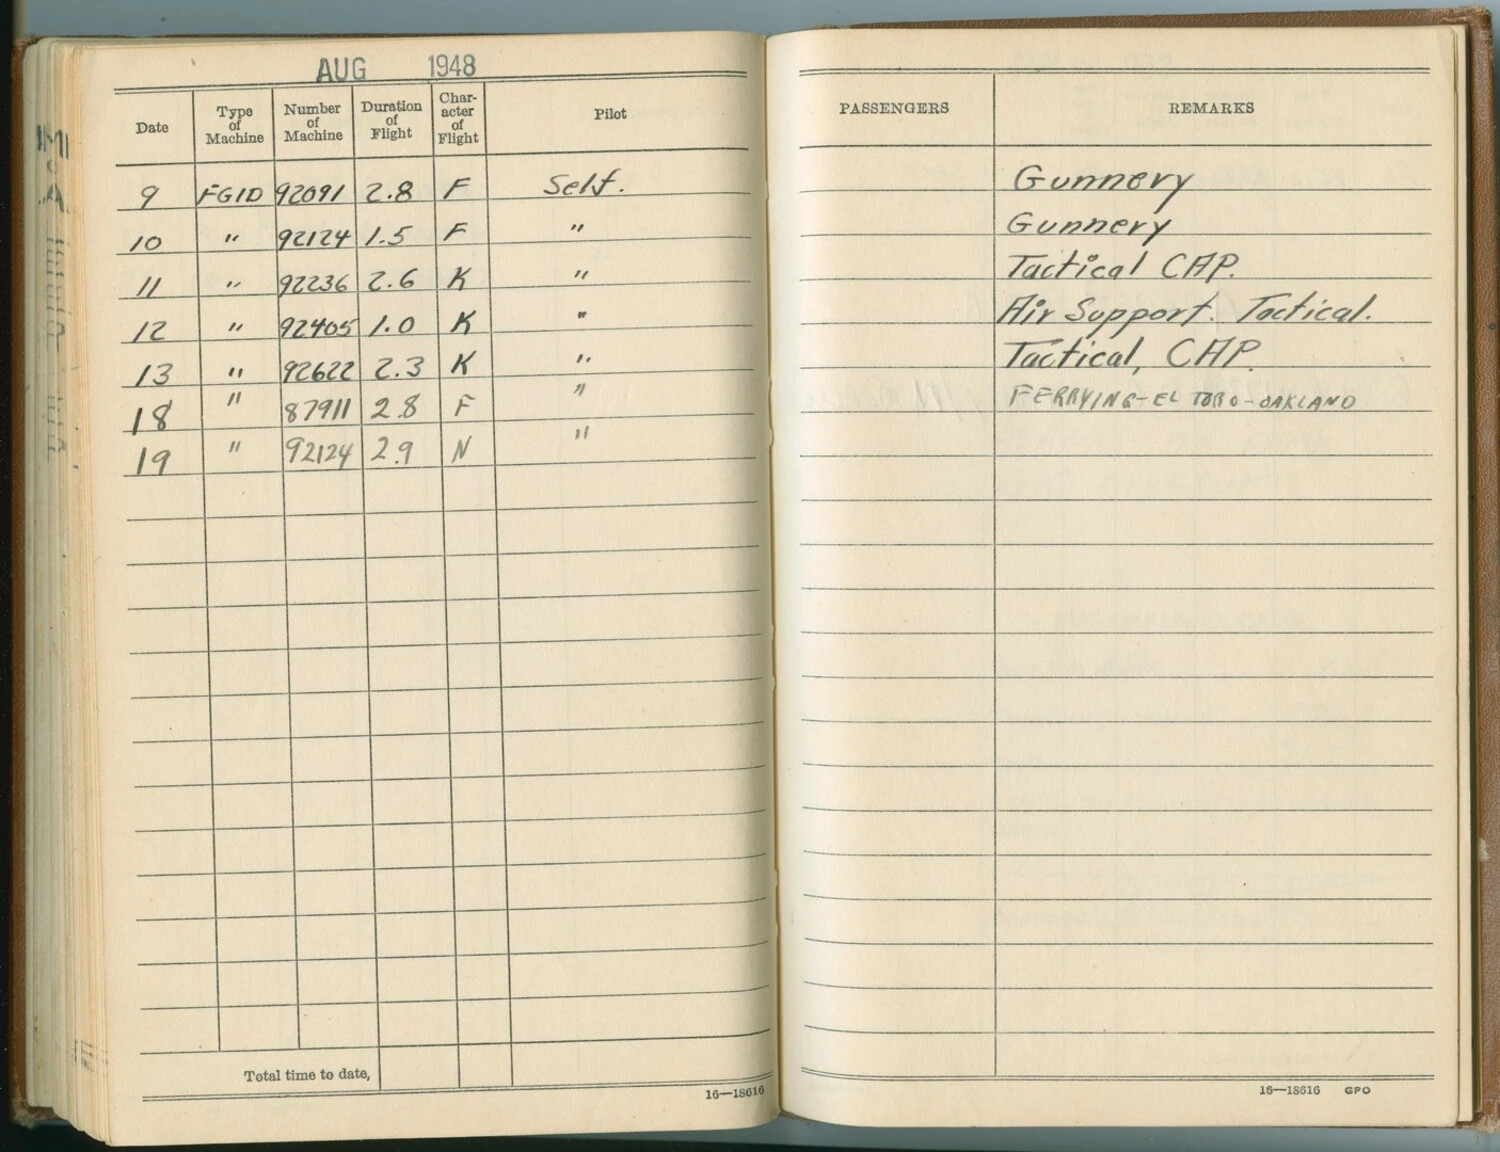 AUG 1948
Date Type of Machine Number of Machine Duration of Flight Char-acter of Flight Pilot PASSENGERS REMARKS
9 FG1D 92091 2.8 F Self. Gunnery
10 " 92124 1.5 F " Gunnery
11 " 92236 2.6 K " Tactical CAP.
12 " 92405 1.0 K " Air Support. Tactical.
13 " 92622 2.3 K " Tactical, CAP.
18 " 87911 2.8 F " FERRYING-EL TORO-OAKLAND
19 " 92124 2.9 N "
Total time to date,
16—18616
16—18616 GPO